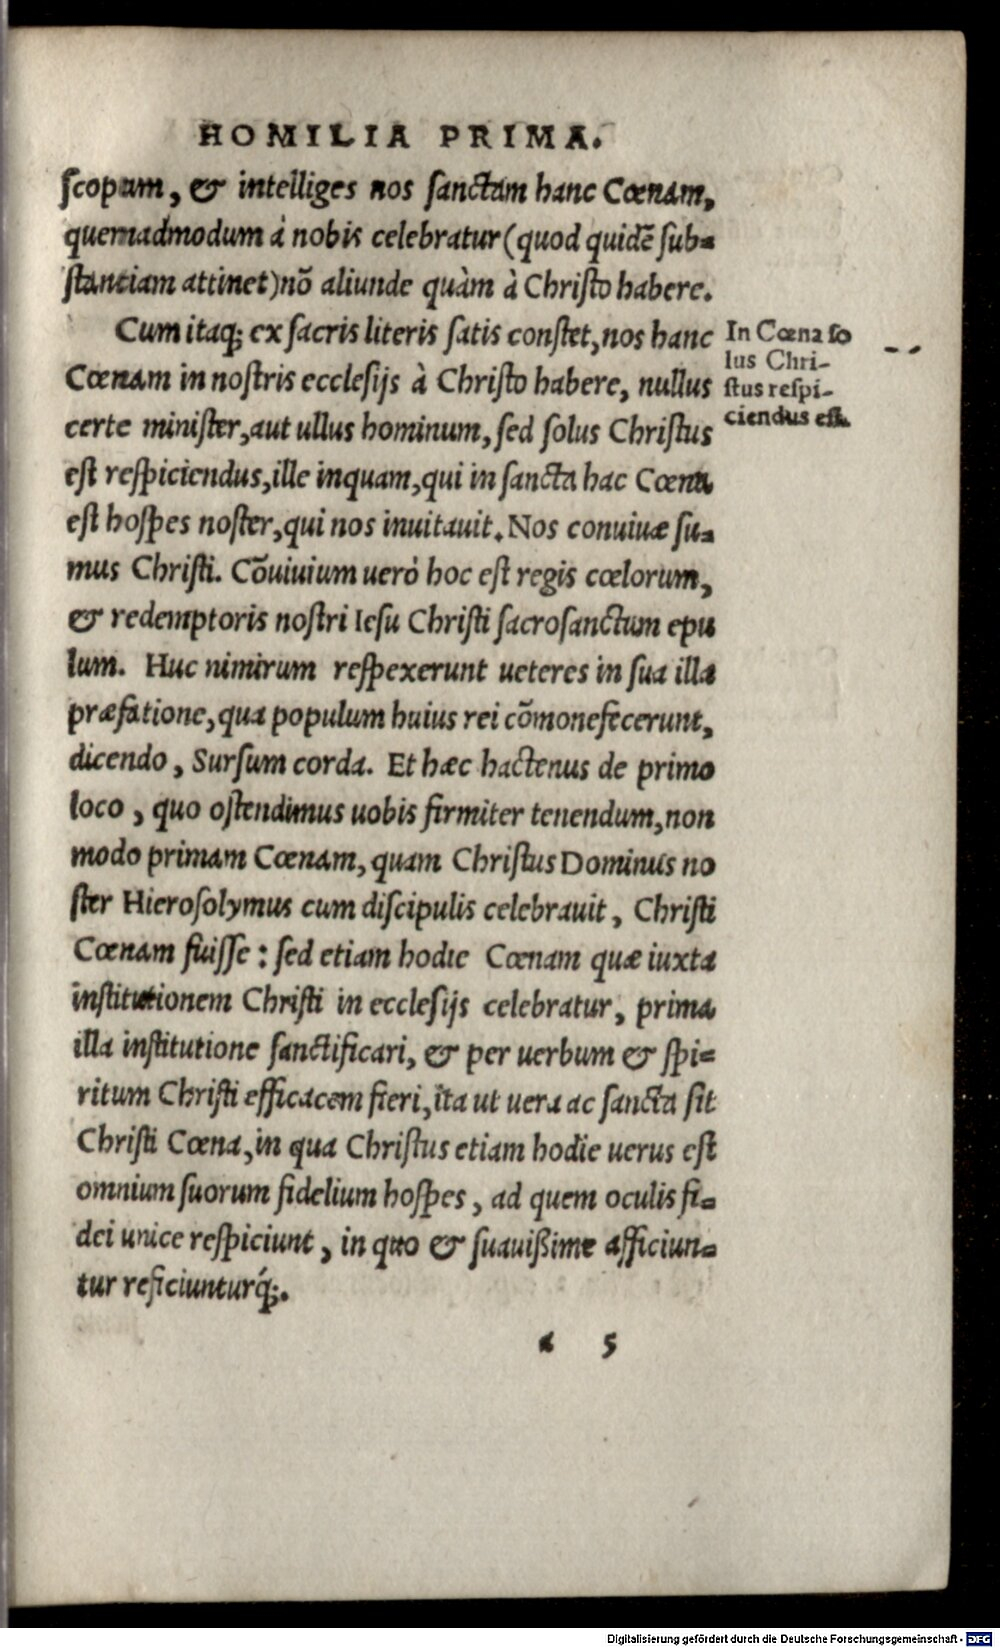 HOMILIA PRIMA.
scopum, & intelliges nos sanctam hanc Cœnam,
quemadmodum à nobis celebratur (quod quidẽ sub=
stantiam attinet) nõ aliunde quàm à Christo habere.
Cum itaq; ex sacris literis satis constet, nos hanc
Cœnam in nostris ecclesijs à Christo habere, nullus
certe minister, aut ullus hominum, sed solus Christus
est respiciendus, ille inquam, qui in sancta hac Cœna
est hospes noster, qui nos inuitauit. Nos conuiuæ su=
mus Christi. Cõuiuium uerò hoc est regis cœlorum,
& redemptoris nostri Iesu Christi sacrosanctum epu
lum. Huc nimirum respexerunt ueteres in sua illa
præfatione, qua populum huius rei cõmonefecerunt,
dicendo, Sursum corda. Et hæc hactenus de primo
loco, quo ostendimus uobis firmiter tenendum, non
modo primam Cœnam, quam Christus Dominus no
ster Hierosolymus cum discipulis celebrauit, Christi
Cœnam fuisse: sed etiam hodie Cœnam quæ iuxta
institutionem Christi in ecclesijs celebratur, prima
illa institutione sanctificari, & per uerbum & spi=
ritum Christi efficacem fieri, ita ut uera ac sancta sit
Christi Cœna, in qua Christus etiam hodie uerus est
omnium suorum fidelium hospes, ad quem oculis fi=
dei unice respiciunt, in quo & suauißime afficiun=
tur reficiunturq́;.
a 5
In Cœna so
lus Chri-
stus respi-
ciendus est.
Digitalisierung gefördert durch die Deutsche Forschungsgemeinschaft - DFG